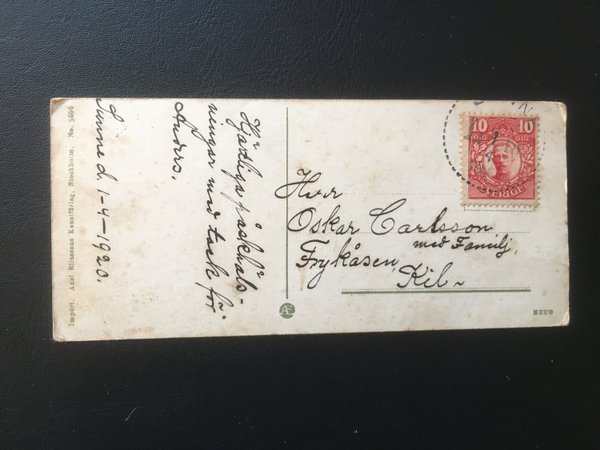 Sunne d. 1-4-1920.
Hjärtliga påskhäls-
ningar med tack för
Anders.
Herr
Oskar Carlsson
med Familj,
Frykåsen,
Kil
10 10
SVERIGE
Import. Axel Eliassons Konstförlag, Stockholm. No. 5656
AE
HUGO